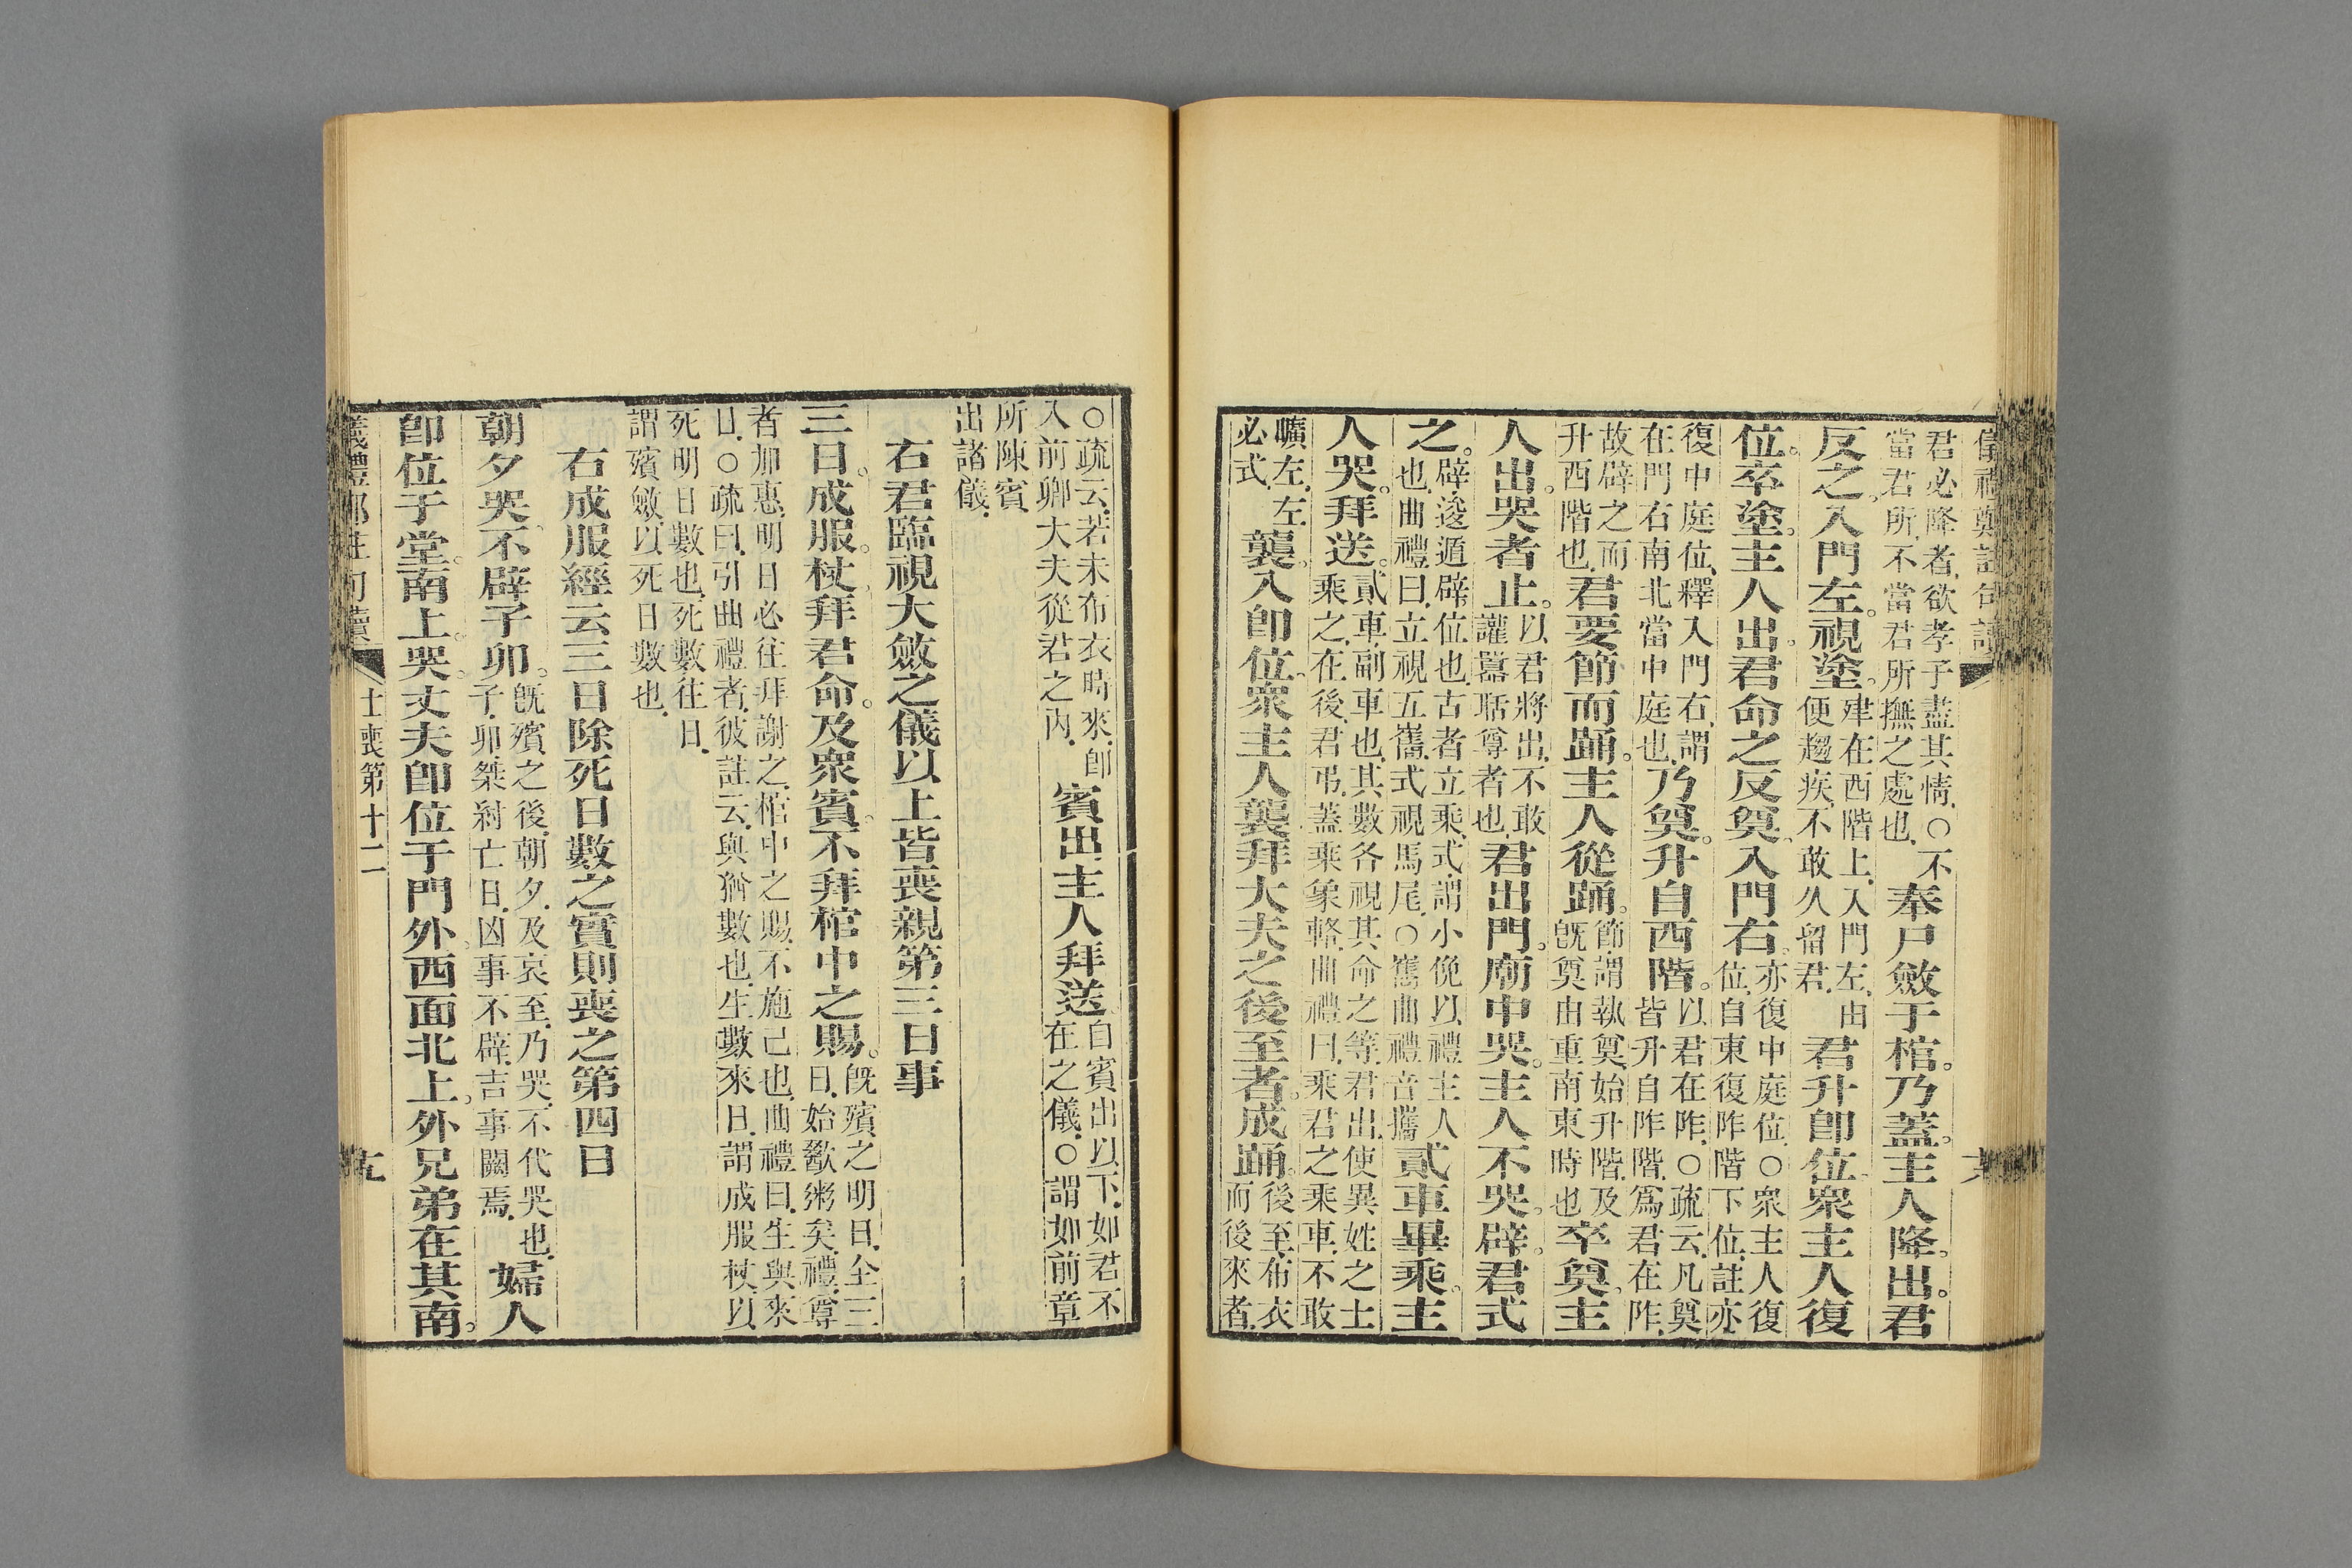 儀禮鄭註句讀
君必降者欲孝子盡其情○不當君所不當君所撫之處也奉尸斂于棺乃蓋主人降出君
反之入門左視塗建在西階上入門左由便趨疾不敢久留君君升卽位衆主人復
位卒塗主人出君命之反奠入門右亦復中庭位○衆主人復位自東復阼階下位註亦
復中庭位釋入門右謂在門右南北當中庭也乃奠升自西階以君在阼○疏云凡奠皆升自阼階爲君在阼
故辟之而升西階也君要節而踊主人從踊節謂執奠始升階及旣奠由重南東時也卒奠主
人出哭者止以君將出不敢讙囂聒尊者也君出門廟中哭主人不哭辟君式
之辟逡遁辟位也古者立乘式謂小俛以禮主人也曲禮曰立視五巂式視馬尾○巂曲禮音攜貳車畢乘主
人哭拜送貳車副車也其數各視其命之等君出使異姓之士乘之在後君弔蓋乘象輅曲禮曰乘君之乘車不敢
曠左左必式襲入卽位衆主人襲拜大夫之後至者成踊後至布衣而後來者
○疏云若未布衣時來卽入前卿大夫從君之內賓出主人拜送自賓出以下如君不在之儀○謂如前章
所陳賓出諸儀
右君臨視大斂之儀以上皆喪親第三日事
三日成服杖拜君命及衆賓不拜棺中之賜旣殯之明日全三日始歠粥矣禮尊
者加惠明日必往拜謝之棺中之賜不施己也曲禮曰生與來日○疏曰引曲禮者彼註云與猶數也生數來日謂成服杖以
死明日數也死數往日謂殯斂以死日數也
右成服經云三日除死日數之實則喪之第四日
朝夕哭不辟子卯旣殯之後朝夕及哀至乃哭不代哭也子卯桀紂亡日凶事不辟吉事闕焉婦人
卽位于堂南上哭丈夫卽位于門外西面北上外兄弟在其南
儀禮鄭註句讀 士喪第十二